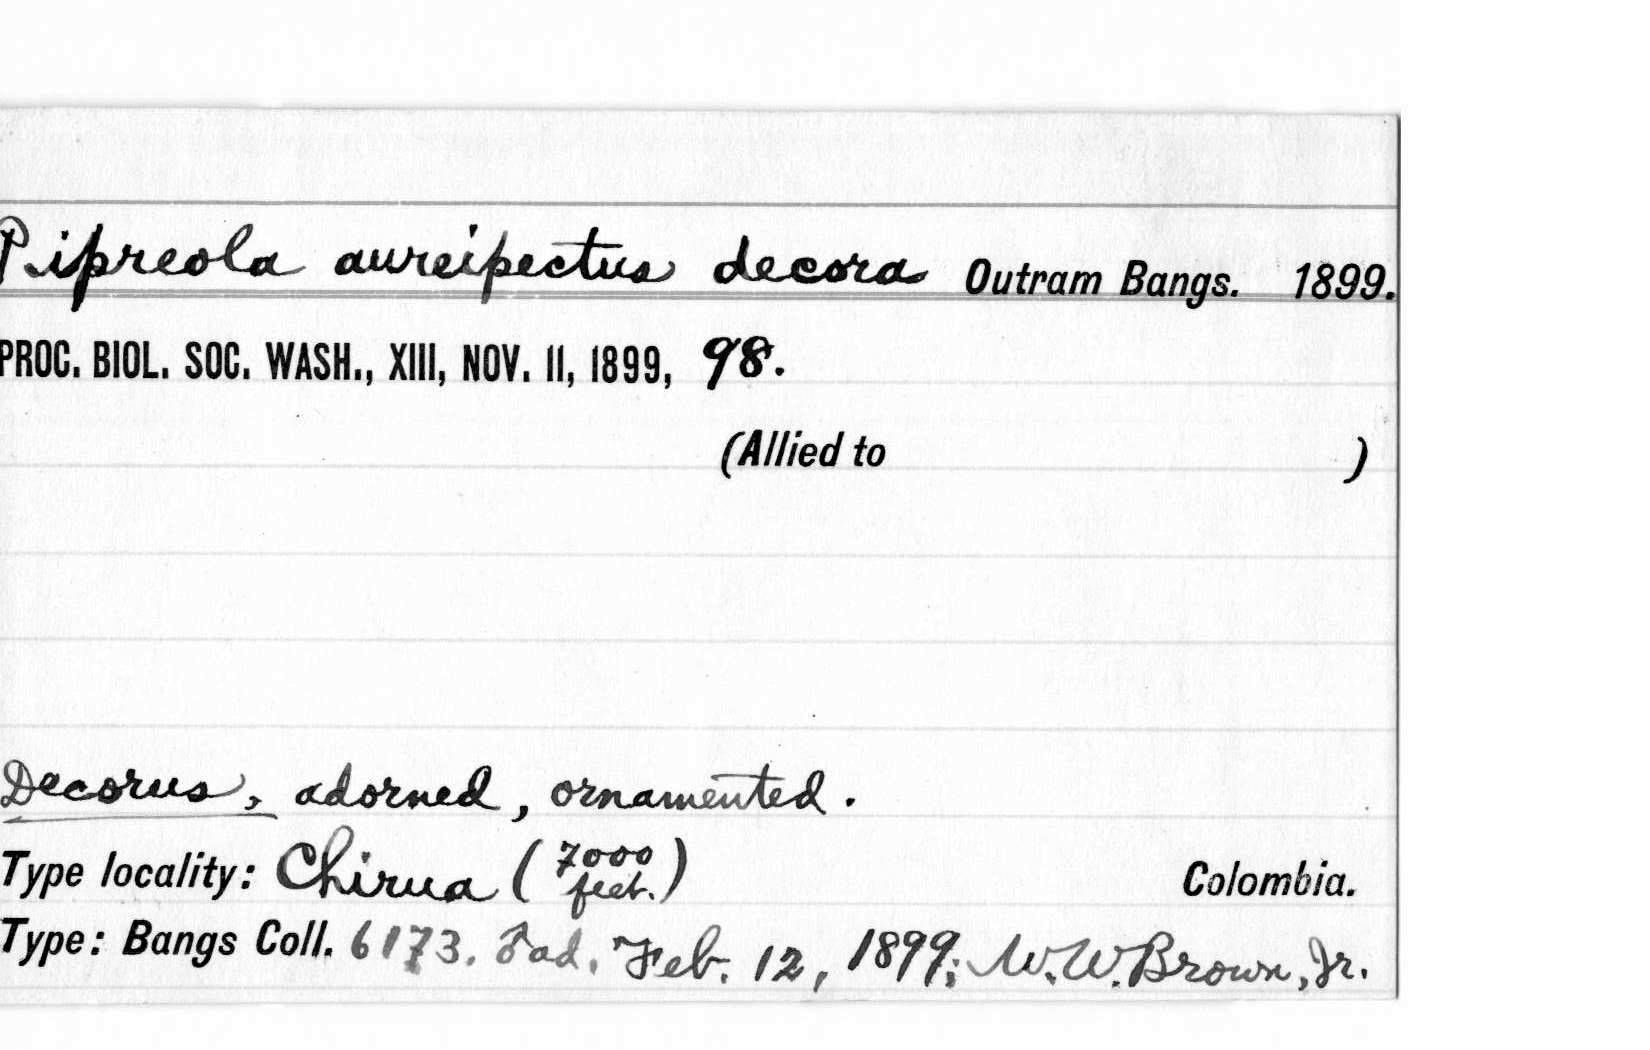 Pipreola aureipectus decora Outram Bangs. 1899.
PROC. BIOL. SOC. WASH., XIII, NOV. 11, 1899, 98.
(Allied to )
Decorus, adorned, ornamented.
Type locality: Chirua (7000 feet.) Colombia.
Type: Bangs Coll. 6173. ♂ ad. Feb. 12, 1899; W.W. Brown, Jr.